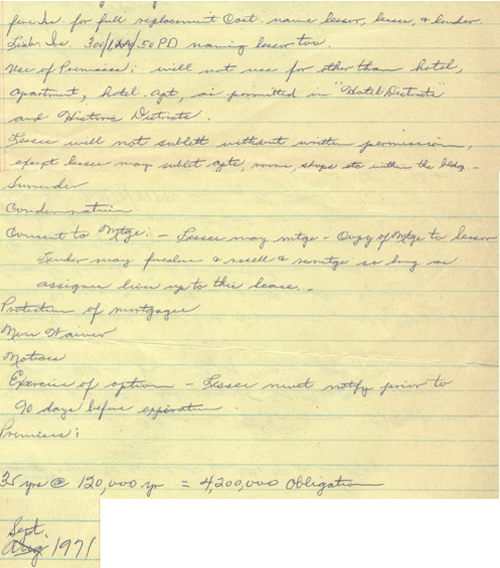 fire Ins. for full replacement cost. name lessor, lessee, & lender.
Liab. Ins. 300/ /50 PD naming lessor too.
Use of Premises; will not use for other than hotel,
apartment, hotel apt, as permitted in "Hotel Districts"
and Historic Districts.
Lessee will not sublett without written permission,
except lessee may sublet apts, rooms, shops etc within the bldg. -
Surrender
Condemnation
Consent to Mtge: - Lessee may mtge - Copy of Mtge to lessor
Lender may foreclose & resell & remtge so long as
assignee lives up to this lease. -
Protection of mortgagee
Non Waiver
Notices
Exercise of option - Lessee must notify prior to
90 days before expiration.
Premises;
35 yrs @ 120,000 yr = 4,200,000 Obligation
Sept.
Aug 1971